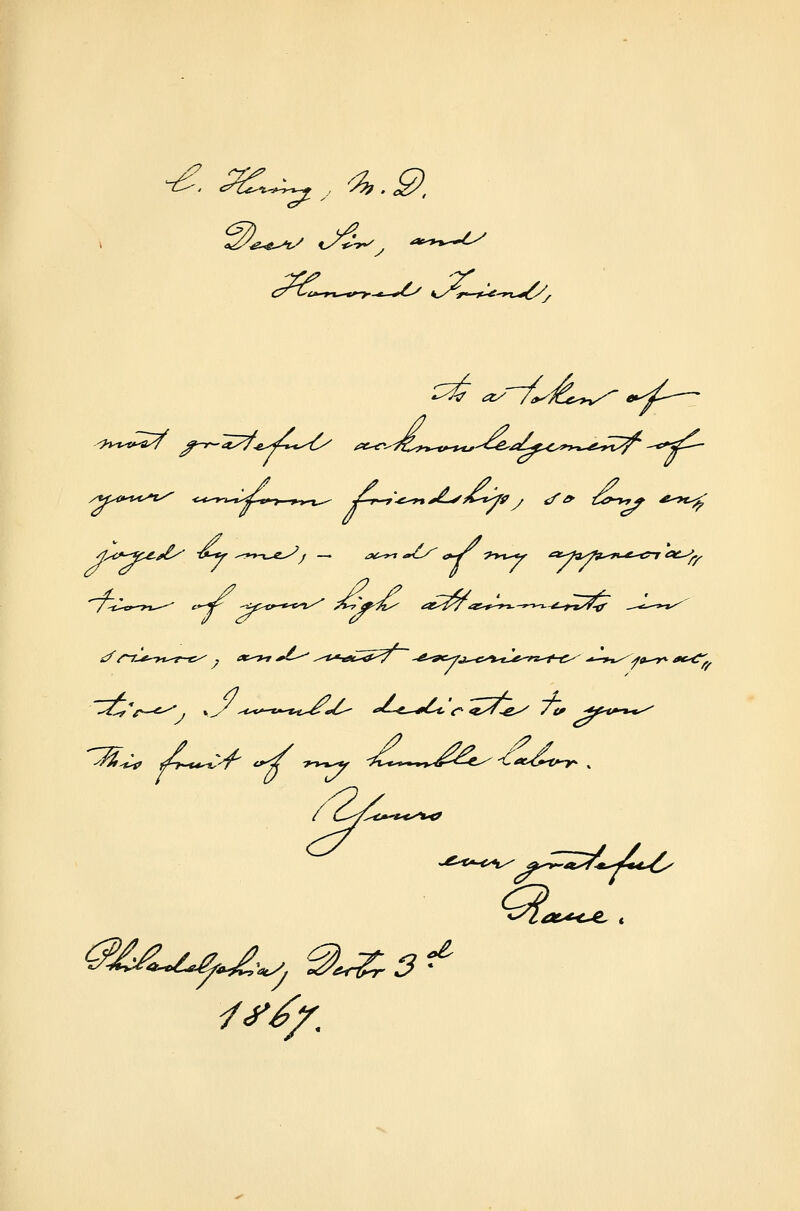 C. Hering, M. D.
Dear Sir, and
Honored Friend,
As a token of
most grateful acknowledgement of
your uniform friendship, so long en„
joyed by me, — and of my apprecia„
tion of your high attainments in
science, and vast experience in prac„
tice, I would dedicate to you
this fruit of my humble labor.
Yours
ever grateful
Raue.
Philadelphia, Decbr 3d
1867.